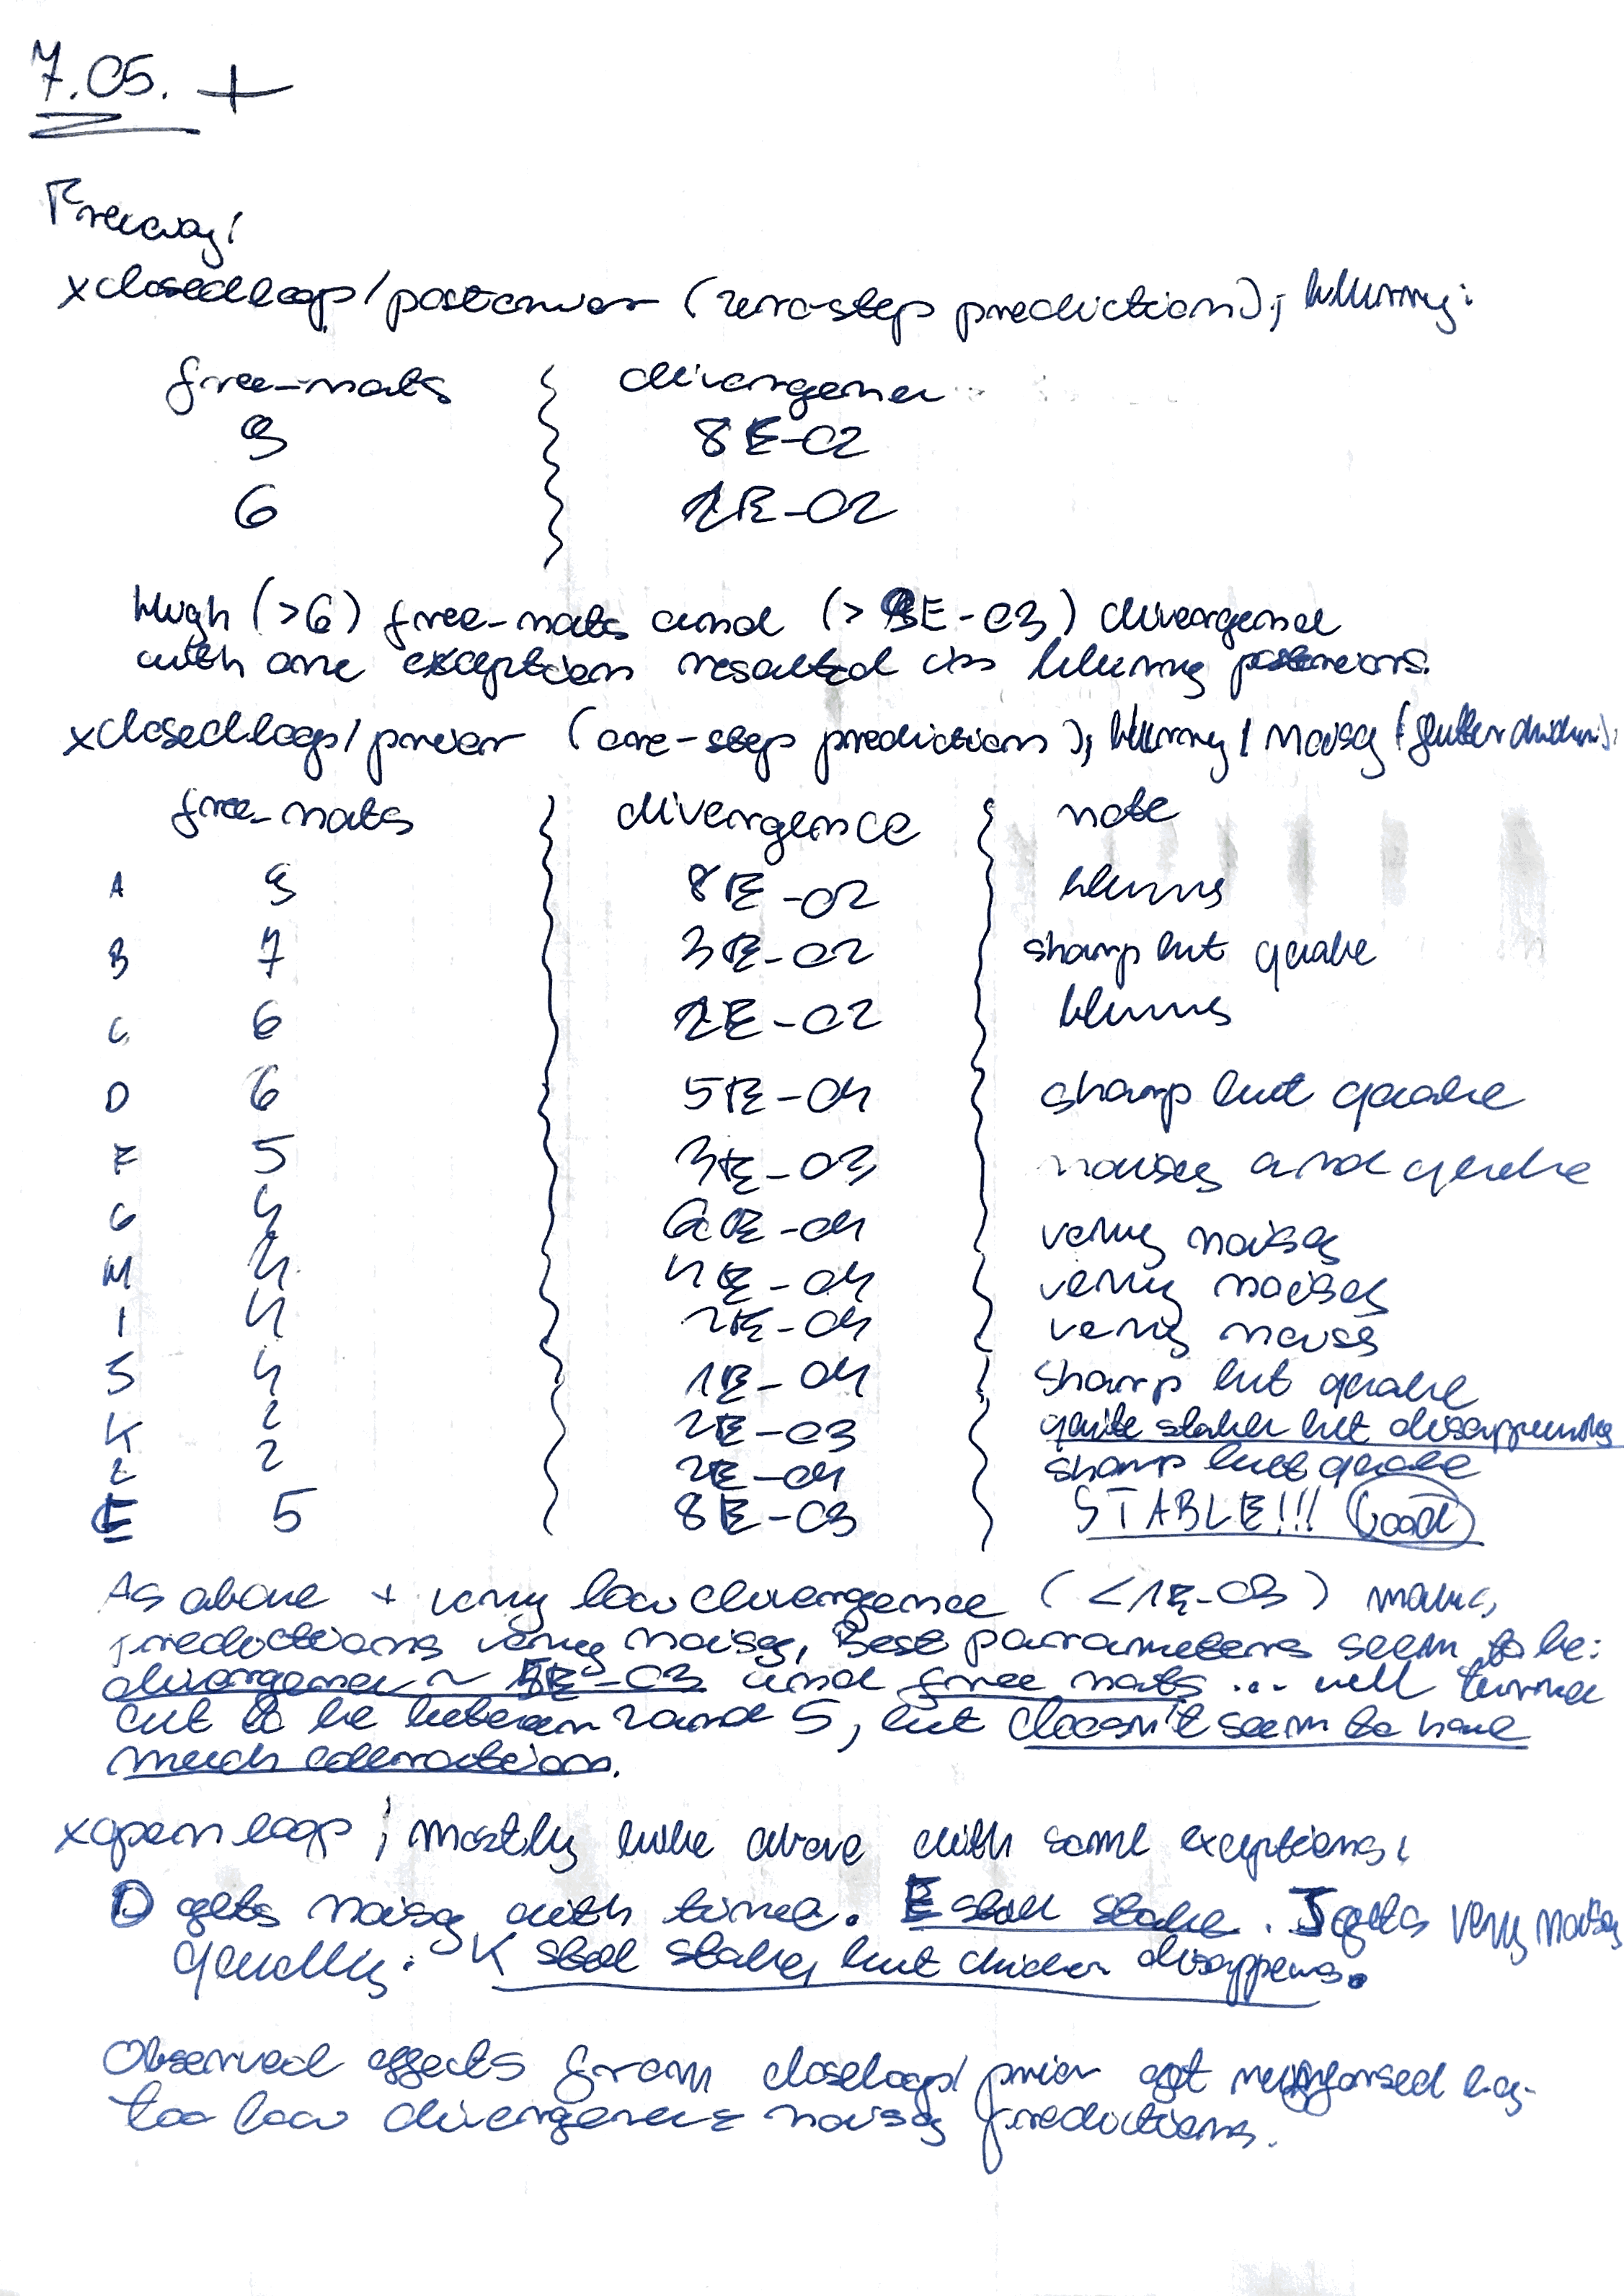 7.05. +
Freeway:
x closedloop/posterior (zero-step prediction); blurry:
free-nats divergence
9 8E-02
6 1E-02
High (>6) free-nats and (> E-03) divergence
with one exception resulted in blurry posteriors.
x closedloop/prior (one-step prediction); blurry/noisy (
free-nats divergence note
A 9 8E-02 blurry
B 7 3E-02 sharp but quake
C 6 1E-02 blurry
D 6 5E-04 sharp but quake
F 5 3E-03 noisy and quake
G 4 6E-04 very noisy
H 4 4E-04 very noisy
I 4 2E-04 very noisy
J 4 1E-04 sharp but quake
K 2 2E-03 quite stable but disappearing
L 2 2E-04 sharp but quake
E 5 8E-03 STABLE!!! Good
As above + very low divergence (<1E-03) makes
predictions very noisy. Best parameters seem to be:
divergence ~ 5E-03 and free nats ... well turns
out to be between 2 and 5, but doesn't seem to have
much
x openloop; mostly like above with some exceptions:
D gets noisy with time. E still stable. J gets very noisy
quickly. K still stable, but chicken disappears.
Observed effects from closeloop/prior get reinforsed e.g.
too low divergence = noisy predictions.